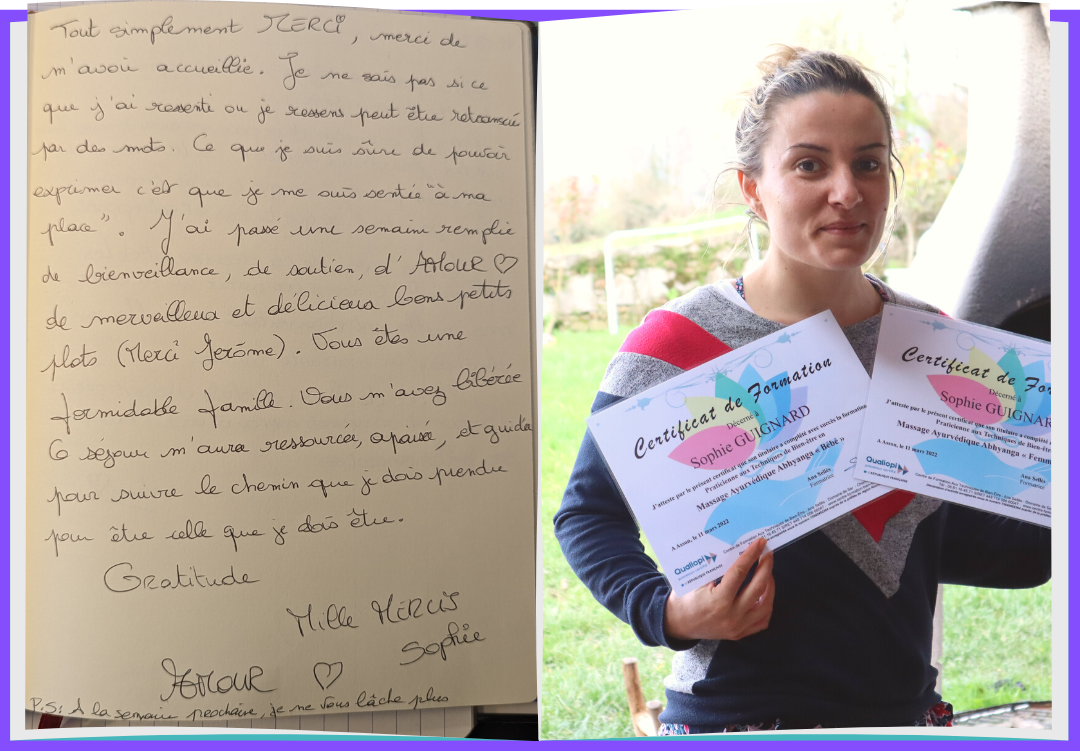 Tout simplement MERCI, merci de
m'avoir accueillie. Je ne sais pas si ce
que j'ai ressenti ou je ressens peut être retranscrit
par des mots. Ce que je suis sûre de pouvoir
exprimer c'est que je me suis sentie "à ma
place". J'ai passé une semaine remplie
de bienveillance, de soutien, d'AMOUR ♡
de merveilleux et délicieux bons petits
plats (Merci Jérôme). Vous êtes une
formidable famille. Vous m'avez libérée
Ce séjour m'aura ressourcée, apaisée, et guida
pour suivre le chemin que je dois prendre
pour être celle que je dois être.
Gratitude
Mille MERCIS
Sophie
AMOUR ♡
P.S: A la semaine prochaine, je ne vous lâche plus
Certificat de Formation
Décerné à
Sophie GUIGNARD
J'atteste par le présent certificat que son titulaire a complété avec succès la formation
Praticienne aux Techniques de Bien-être en
Massage Ayurvédique Abhyanga « Bébé »
A Asson, le 11 mars 2022
Ana Sellés
Formatrice
Qualiopi
processus certifié
RÉPUBLIQUE FRANÇAISE
Certificat de For
Décerné à
Sophie GUIGNAR
J'atteste par le présent certificat que son titulaire a complété
Praticienne aux Techniques de Bien-être
Massage Ayurvédique Abhyanga « Femm
A Asson, le 11 mars 2022
Ana Sellés
Formatrice
Qualiopi
processus certifié
RÉPUBLIQUE FRANÇAISE